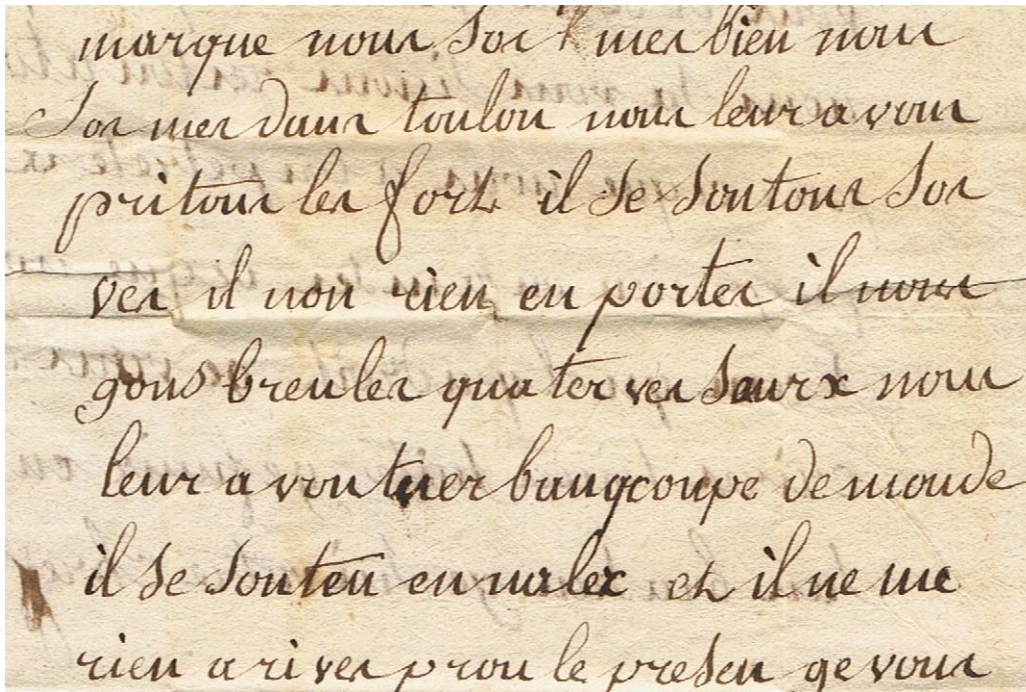 marque nous sor mes bien nous
sor mes dans toulon nous leur a vons
pri tous les fort il se son tous sor
ves il non rien en porter il nous
gons breules qua ter ves seurx nous
leur a von tuer baugcoupe de monde
il se son ten en nalex et il ne me
rien a rives prou le presen ge vous